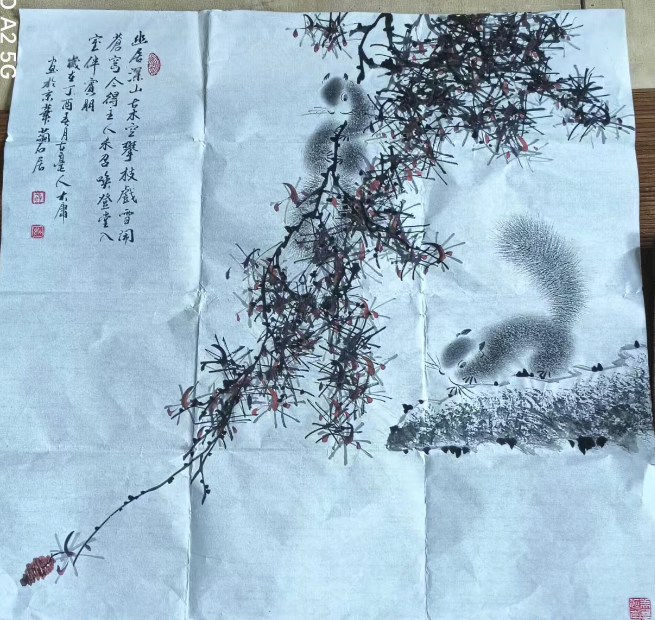 幽居深山古木空攀枝戲雪闹
蒼穹今得主人來召喚登堂入
室伴賓朋
歲在丁酉春月古道人大庸
画於京華蘭石居
D A2 5G